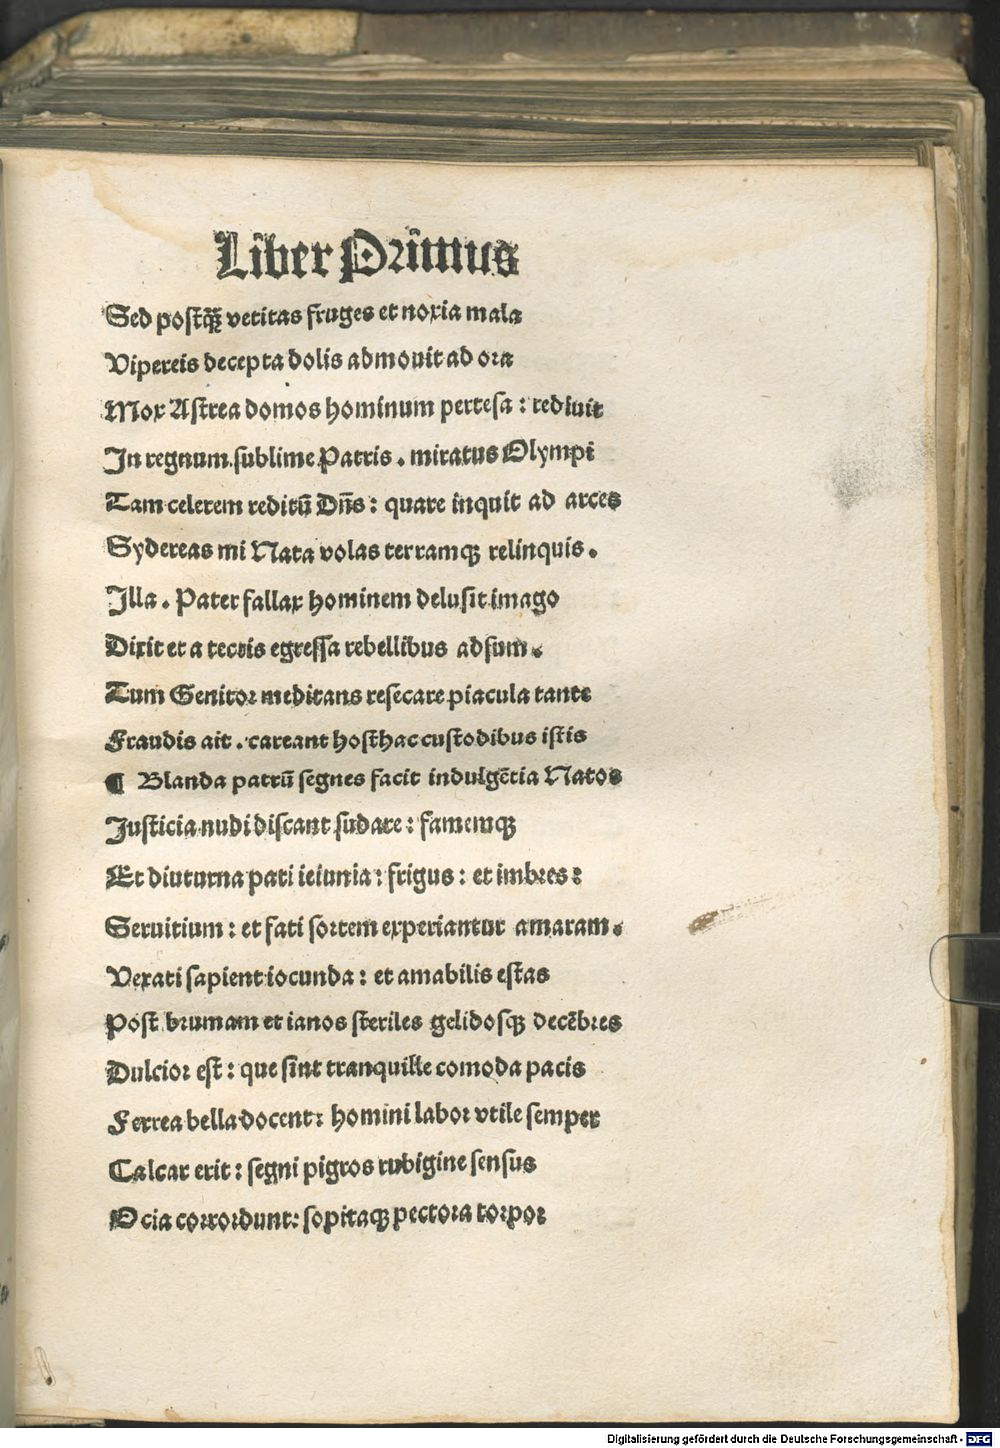 Liber Primus
Sed postq̃ȝ vetitas fruges et noxia mala
Vipereis decepta dolis admouit ad ora
Mox Astrea domos hominum pertesa : rediuit
In regnum sublime Patris . miratus Olympi
Tam celerem reditū Dn̄s : quare inquit ad arces
Sydereas mi Nata volas terramqȝ relinquis .
Illa . Pater fallax hominem delusit imago
Dixit et a tectis egressa rebellibus adsum .
Tum Genitor meditans resecare piacula tante
Fraudis ait . careant hosthac custodibus istis
¶ Blanda patrū segnes facit indulgētia Natos
Justicia nudi discant sudare : famemqȝ
Et diuturna pati ieiunia : frigus : et imbres :
Seruitium : et fati sortem experiantur amaram .
Vexati sapient iocunda : et amabilis estas
Post brumam et ianos steriles gelidosqȝ decēbres
Dulcior est : que sint tranquille comoda pacis
Ferrea bella docent : homini labor vtile semper
Calcar erit : segni pigros rubigine sensus
Ocia corrordunt : sopitaqȝ pectora torpor
Digitalisierung gefördert durch die Deutsche Forschungsgemeinschaft - DFG